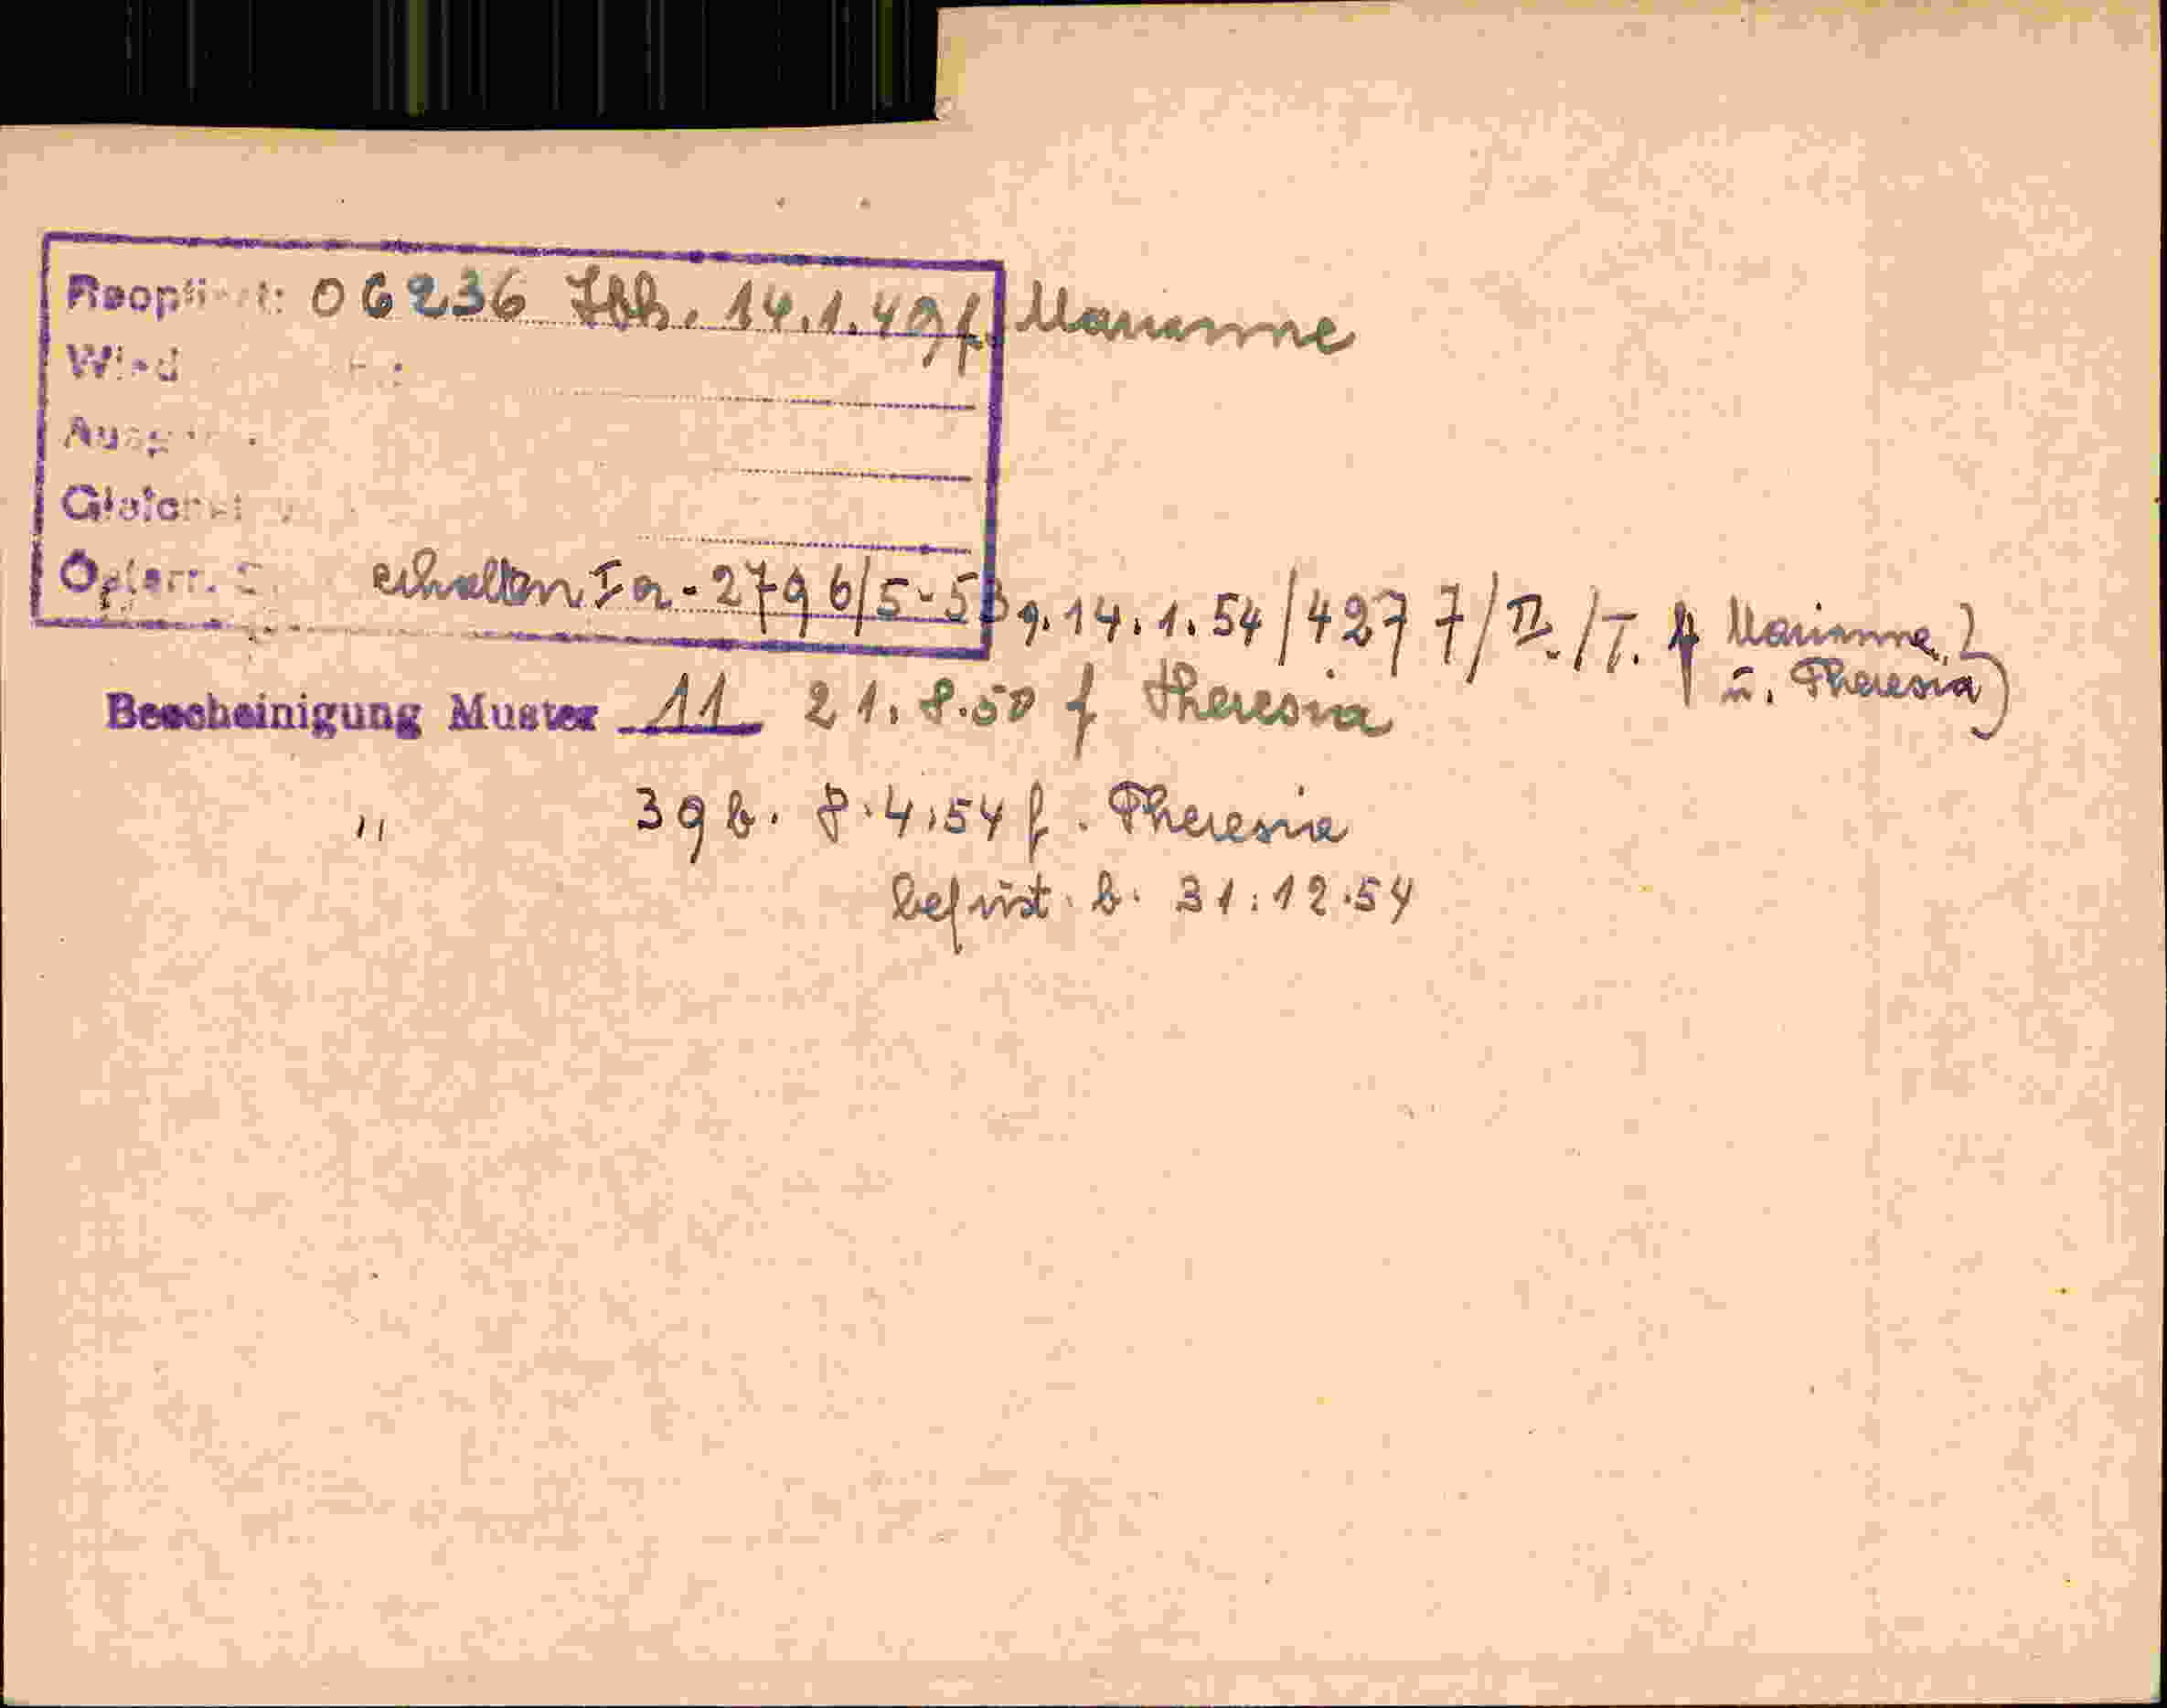 Reoptiert: 06236 Ibk. 14.1.49 f. Marianne
Österr. erhalten Ia-2796/5-53 v. 14.1.54/4277/II./T. f Marianne
u. Theresia)
Bescheinigung Muster 11 21.8.50 f Theresia
" 39 b. 8.4.54 f. Theresia
befrist. b. 31.12.54